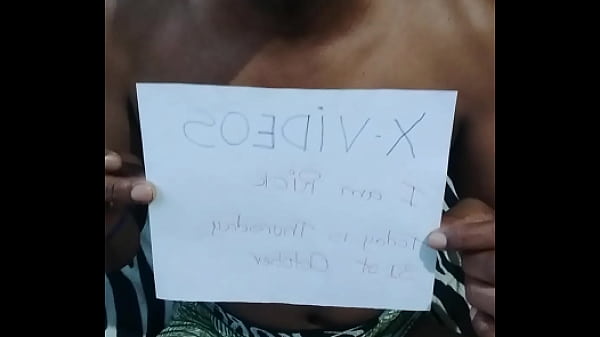 X-ViDEOS
I am Rick
Today is Thursday
31 st October